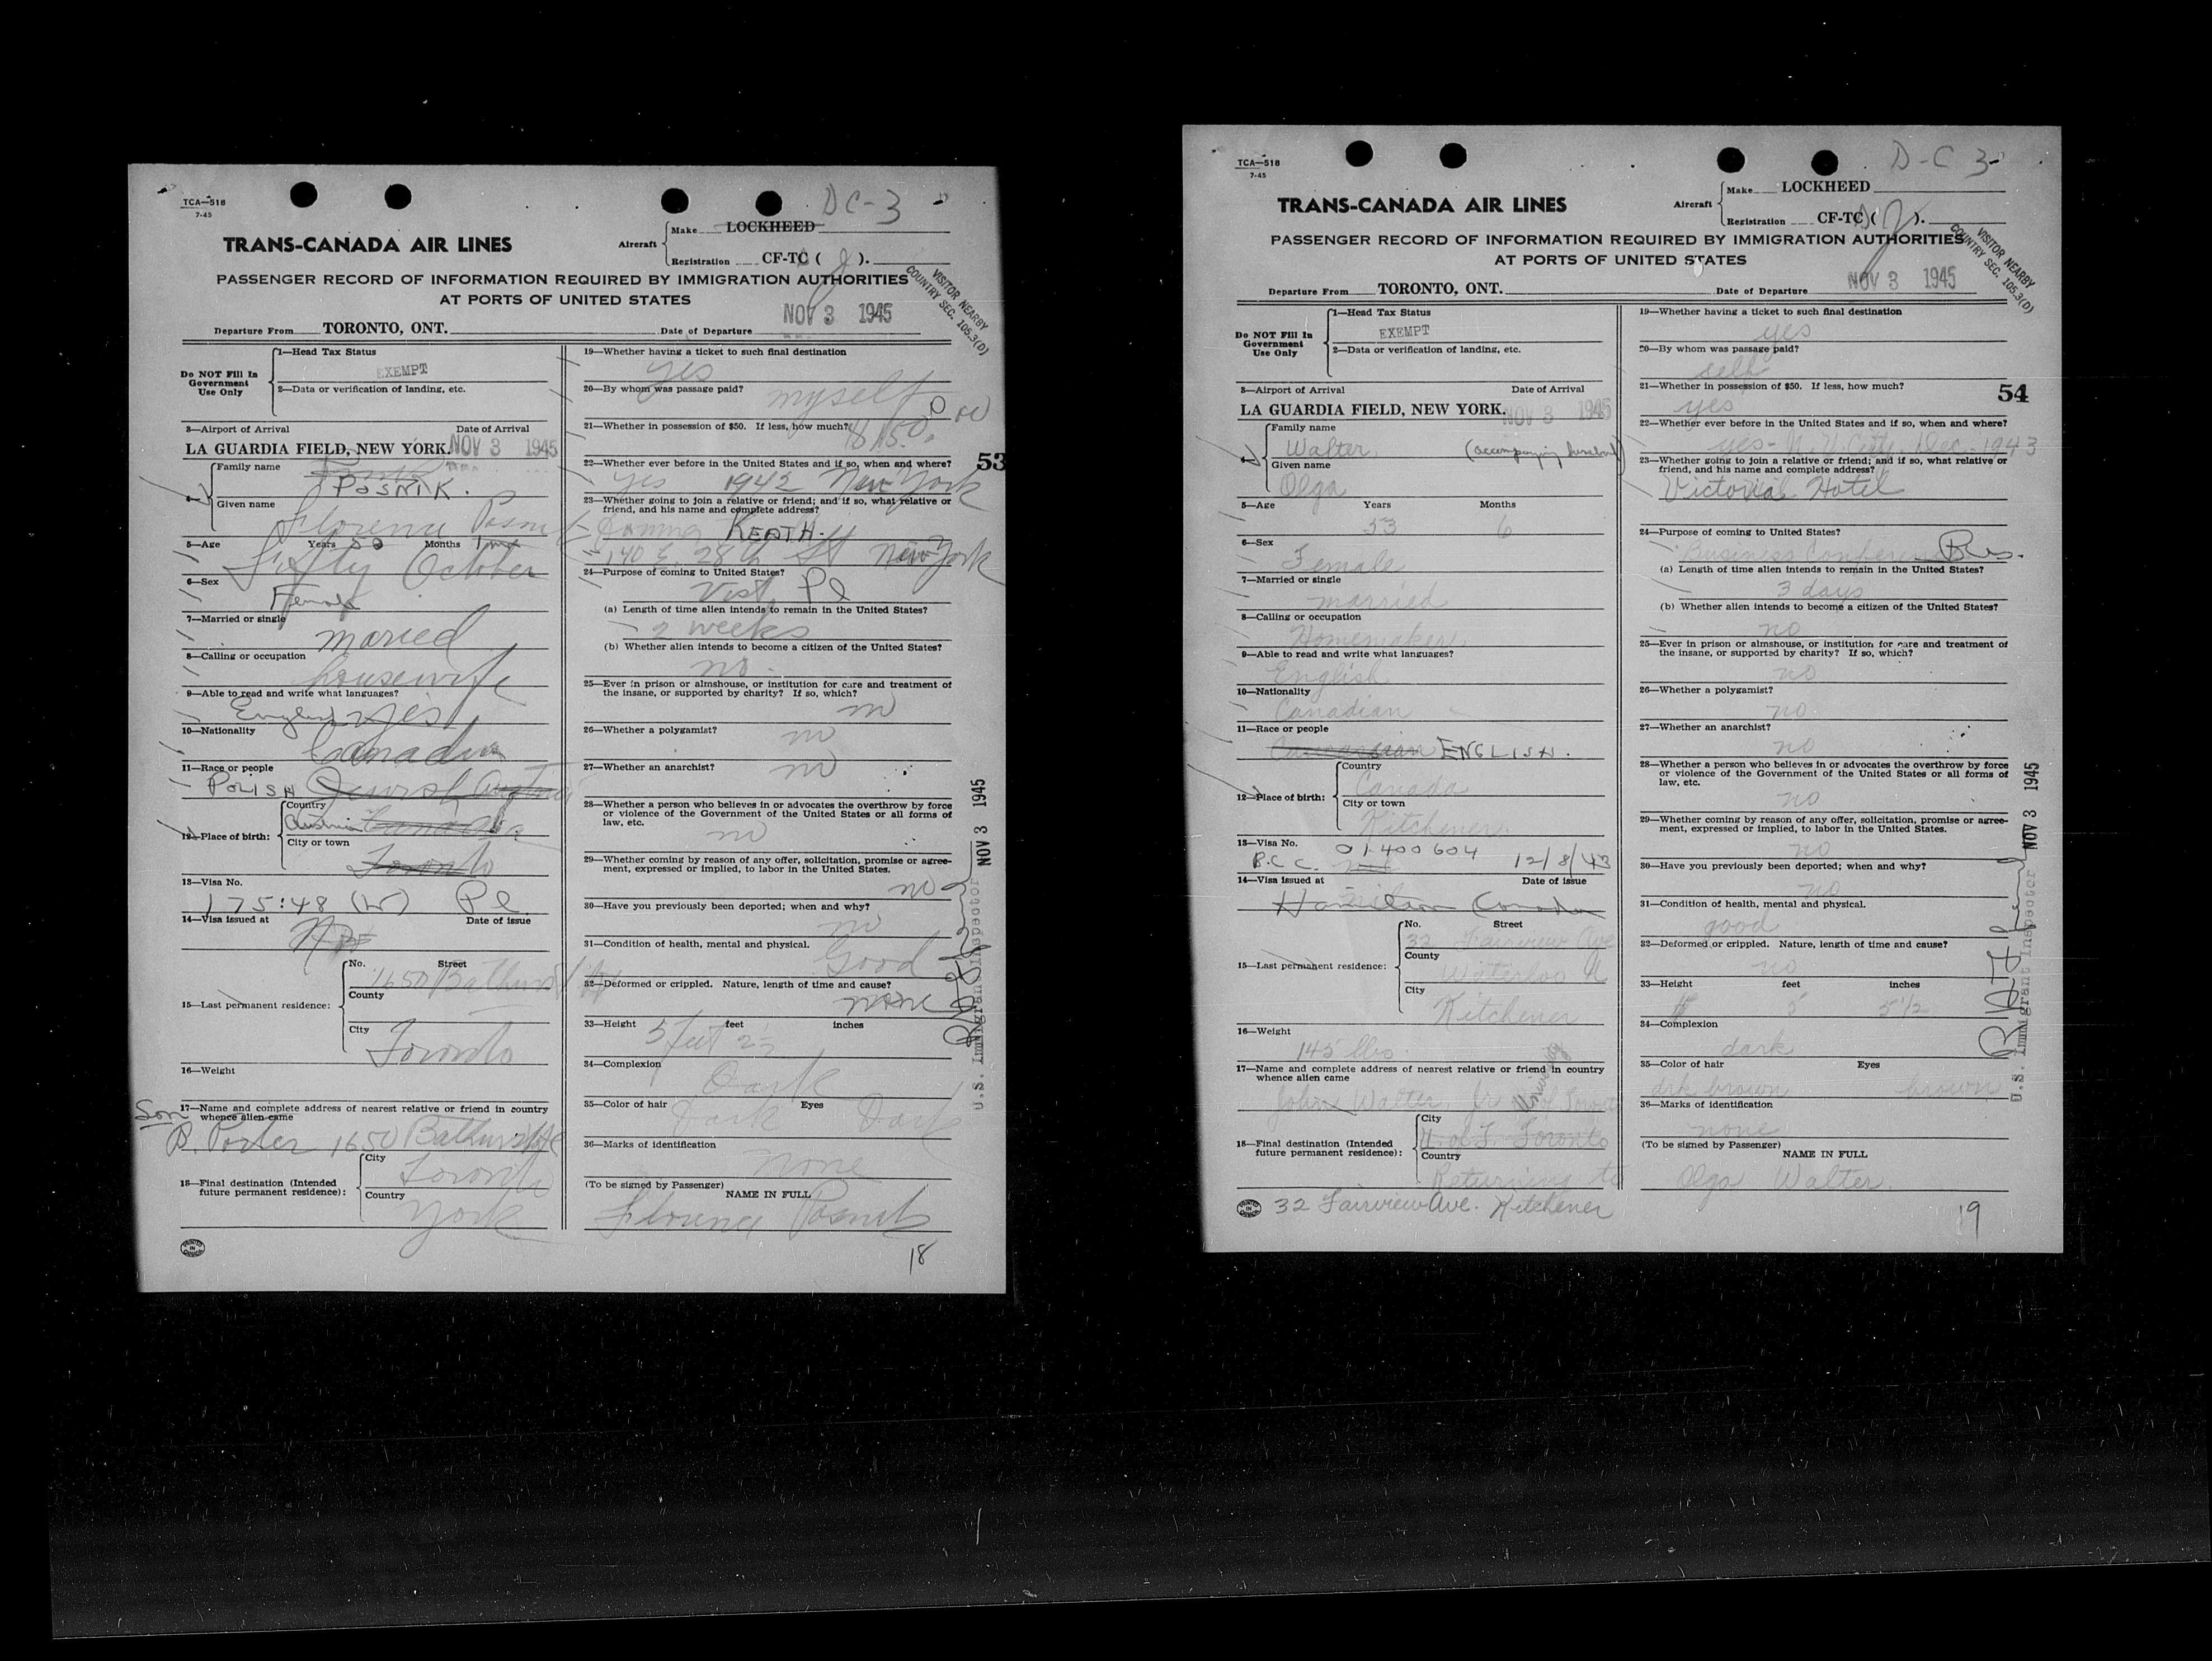 TCA—518
7-45
DC-3
TRANS-CANADA AIR LINES
Aircraft
Make LOCKHEED
Registration CF-TC ( ).
PASSENGER RECORD OF INFORMATION REQUIRED BY IMMIGRATION AUTHORITIES
AT PORTS OF UNITED STATES
VISITOR NEARBY
COUNTRY SEC. 105.3(D)
Departure From TORONTO, ONT. Date of Departure NOV 3 1945
Do NOT Fill In
Government
Use Only
1—Head Tax Status
EXEMPT
2—Data or verification of landing, etc.
3—Airport of Arrival Date of Arrival
LA GUARDIA FIELD, NEW YORK. NOV 3 1945
Family name
POSNIK.
Given name
Florence
5—Age Years Months
Fifty October
6—Sex
Female
7—Married or single
maried
8—Calling or occupation
housewife
9—Able to read and write what languages?
English yes
10—Nationality
Canadian
11—Race or people
POLISH Jewish
12—Place of birth:
Country
Austria Canada
City or town
Toronto
13—Visa No.
175:48 (W) Pl
14—Visa issued at Date of issue
15—Last permanent residence:
No. Street
1650 Bathurst
County
City
Toronto
16—Weight
Son
17—Name and complete address of nearest relative or friend in country
whence alien came
B. Porter 1650 Bathurst
18—Final destination (Intended
future permanent residence):
City
Toronto
Country
York
PRINTED IN CANADA
19—Whether having a ticket to such final destination
Yes
20—By whom was passage paid?
myself
21—Whether in possession of $50. If less, how much?
22—Whether ever before in the United States and if so, when and where? 53
yes 1942 New York
23—Whether going to join a relative or friend; and if so, what relative or
friend, and his name and complete address?
140 E. 28 St New York
24—Purpose of coming to United States?
Vist Pl
(a) Length of time alien intends to remain in the United States?
2 weeks
(b) Whether alien intends to become a citizen of the United States?
no
25—Ever in prison or almshouse, or institution for care and treatment of
the insane, or supported by charity? If so, which?
no
26—Whether a polygamist?
no
27—Whether an anarchist?
no
28—Whether a person who believes in or advocates the overthrow by force
or violence of the Government of the United States or all forms of
law, etc.
no
29—Whether coming by reason of any offer, solicitation, promise or agree-
ment, expressed or implied, to labor in the United States.
no
30—Have you previously been deported; when and why?
no
31—Condition of health, mental and physical.
Good
32—Deformed or crippled. Nature, length of time and cause?
none
33—Height feet inches
5 feet 2½
34—Complexion
Dark
35—Color of hair Eyes
Dark Dark
36—Marks of identification
none
(To be signed by Passenger)
NAME IN FULL
Florence
18
U.S. Immigrant Inspector NOV 3 1945
TCA—518
7-45
D-C 3
TRANS-CANADA AIR LINES
Aircraft
Make LOCKHEED
Registration CF-TC ( ).
PASSENGER RECORD OF INFORMATION REQUIRED BY IMMIGRATION AUTHORITIES
AT PORTS OF UNITED STATES
VISITOR NEARBY
COUNTRY SEC. 105.3(D)
Departure From TORONTO, ONT. Date of Departure NOV 3 1945
Do NOT Fill In
Government
Use Only
1—Head Tax Status
EXEMPT
2—Data or verification of landing, etc.
3—Airport of Arrival Date of Arrival
LA GUARDIA FIELD, NEW YORK. NOV 3 1945
Family name
Walter (accompanying husband)
Given name
Olga
5—Age Years Months
53 6
6—Sex
Female
7—Married or single
married
8—Calling or occupation
Homemaker
9—Able to read and write what languages?
English
10—Nationality
Canadian
11—Race or people
ENGLISH.
12—Place of birth:
Country
Canada
City or town
Kitchener
13—Visa No. 01400604
B.C.C. 12/8/43
14—Visa issued at Date of issue
Hamilton Canada
15—Last permanent residence:
No. Street
32 Fairview Ave
County
Waterloo
City
Kitchener
16—Weight
145 lbs.
17—Name and complete address of nearest relative or friend in country
whence alien came
John Walter, Jr University of Toronto
18—Final destination (Intended
future permanent residence):
City
U. of T. Toronto
Country
Returning to
PRINTED IN CANADA
32 Fairview Ave. Kitchener
19—Whether having a ticket to such final destination
yes
20—By whom was passage paid?
self
21—Whether in possession of $50. If less, how much? 54
yes
22—Whether ever before in the United States and if so, when and where?
yes - N.Y. City, Dec. 1943
23—Whether going to join a relative or friend; and if so, what relative or
friend, and his name and complete address?
Victorial Hotel
24—Purpose of coming to United States?
Business Conference Bus.
(a) Length of time alien intends to remain in the United States?
3 days
(b) Whether alien intends to become a citizen of the United States?
no
25—Ever in prison or almshouse, or institution for care and treatment of
the insane, or supported by charity? If so, which?
no
26—Whether a polygamist?
no
27—Whether an anarchist?
no
28—Whether a person who believes in or advocates the overthrow by force
or violence of the Government of the United States or all forms of
law, etc.
no
29—Whether coming by reason of any offer, solicitation, promise or agree-
ment, expressed or implied, to labor in the United States.
no
30—Have you previously been deported; when and why?
no
31—Condition of health, mental and physical.
good
32—Deformed or crippled. Nature, length of time and cause?
no
33—Height feet inches
5 5½
34—Complexion
dark
35—Color of hair Eyes
drk brown brown
36—Marks of identification
none
(To be signed by Passenger)
NAME IN FULL
Olga Walter
19
U.S. Immigrant Inspector NOV 3 1945